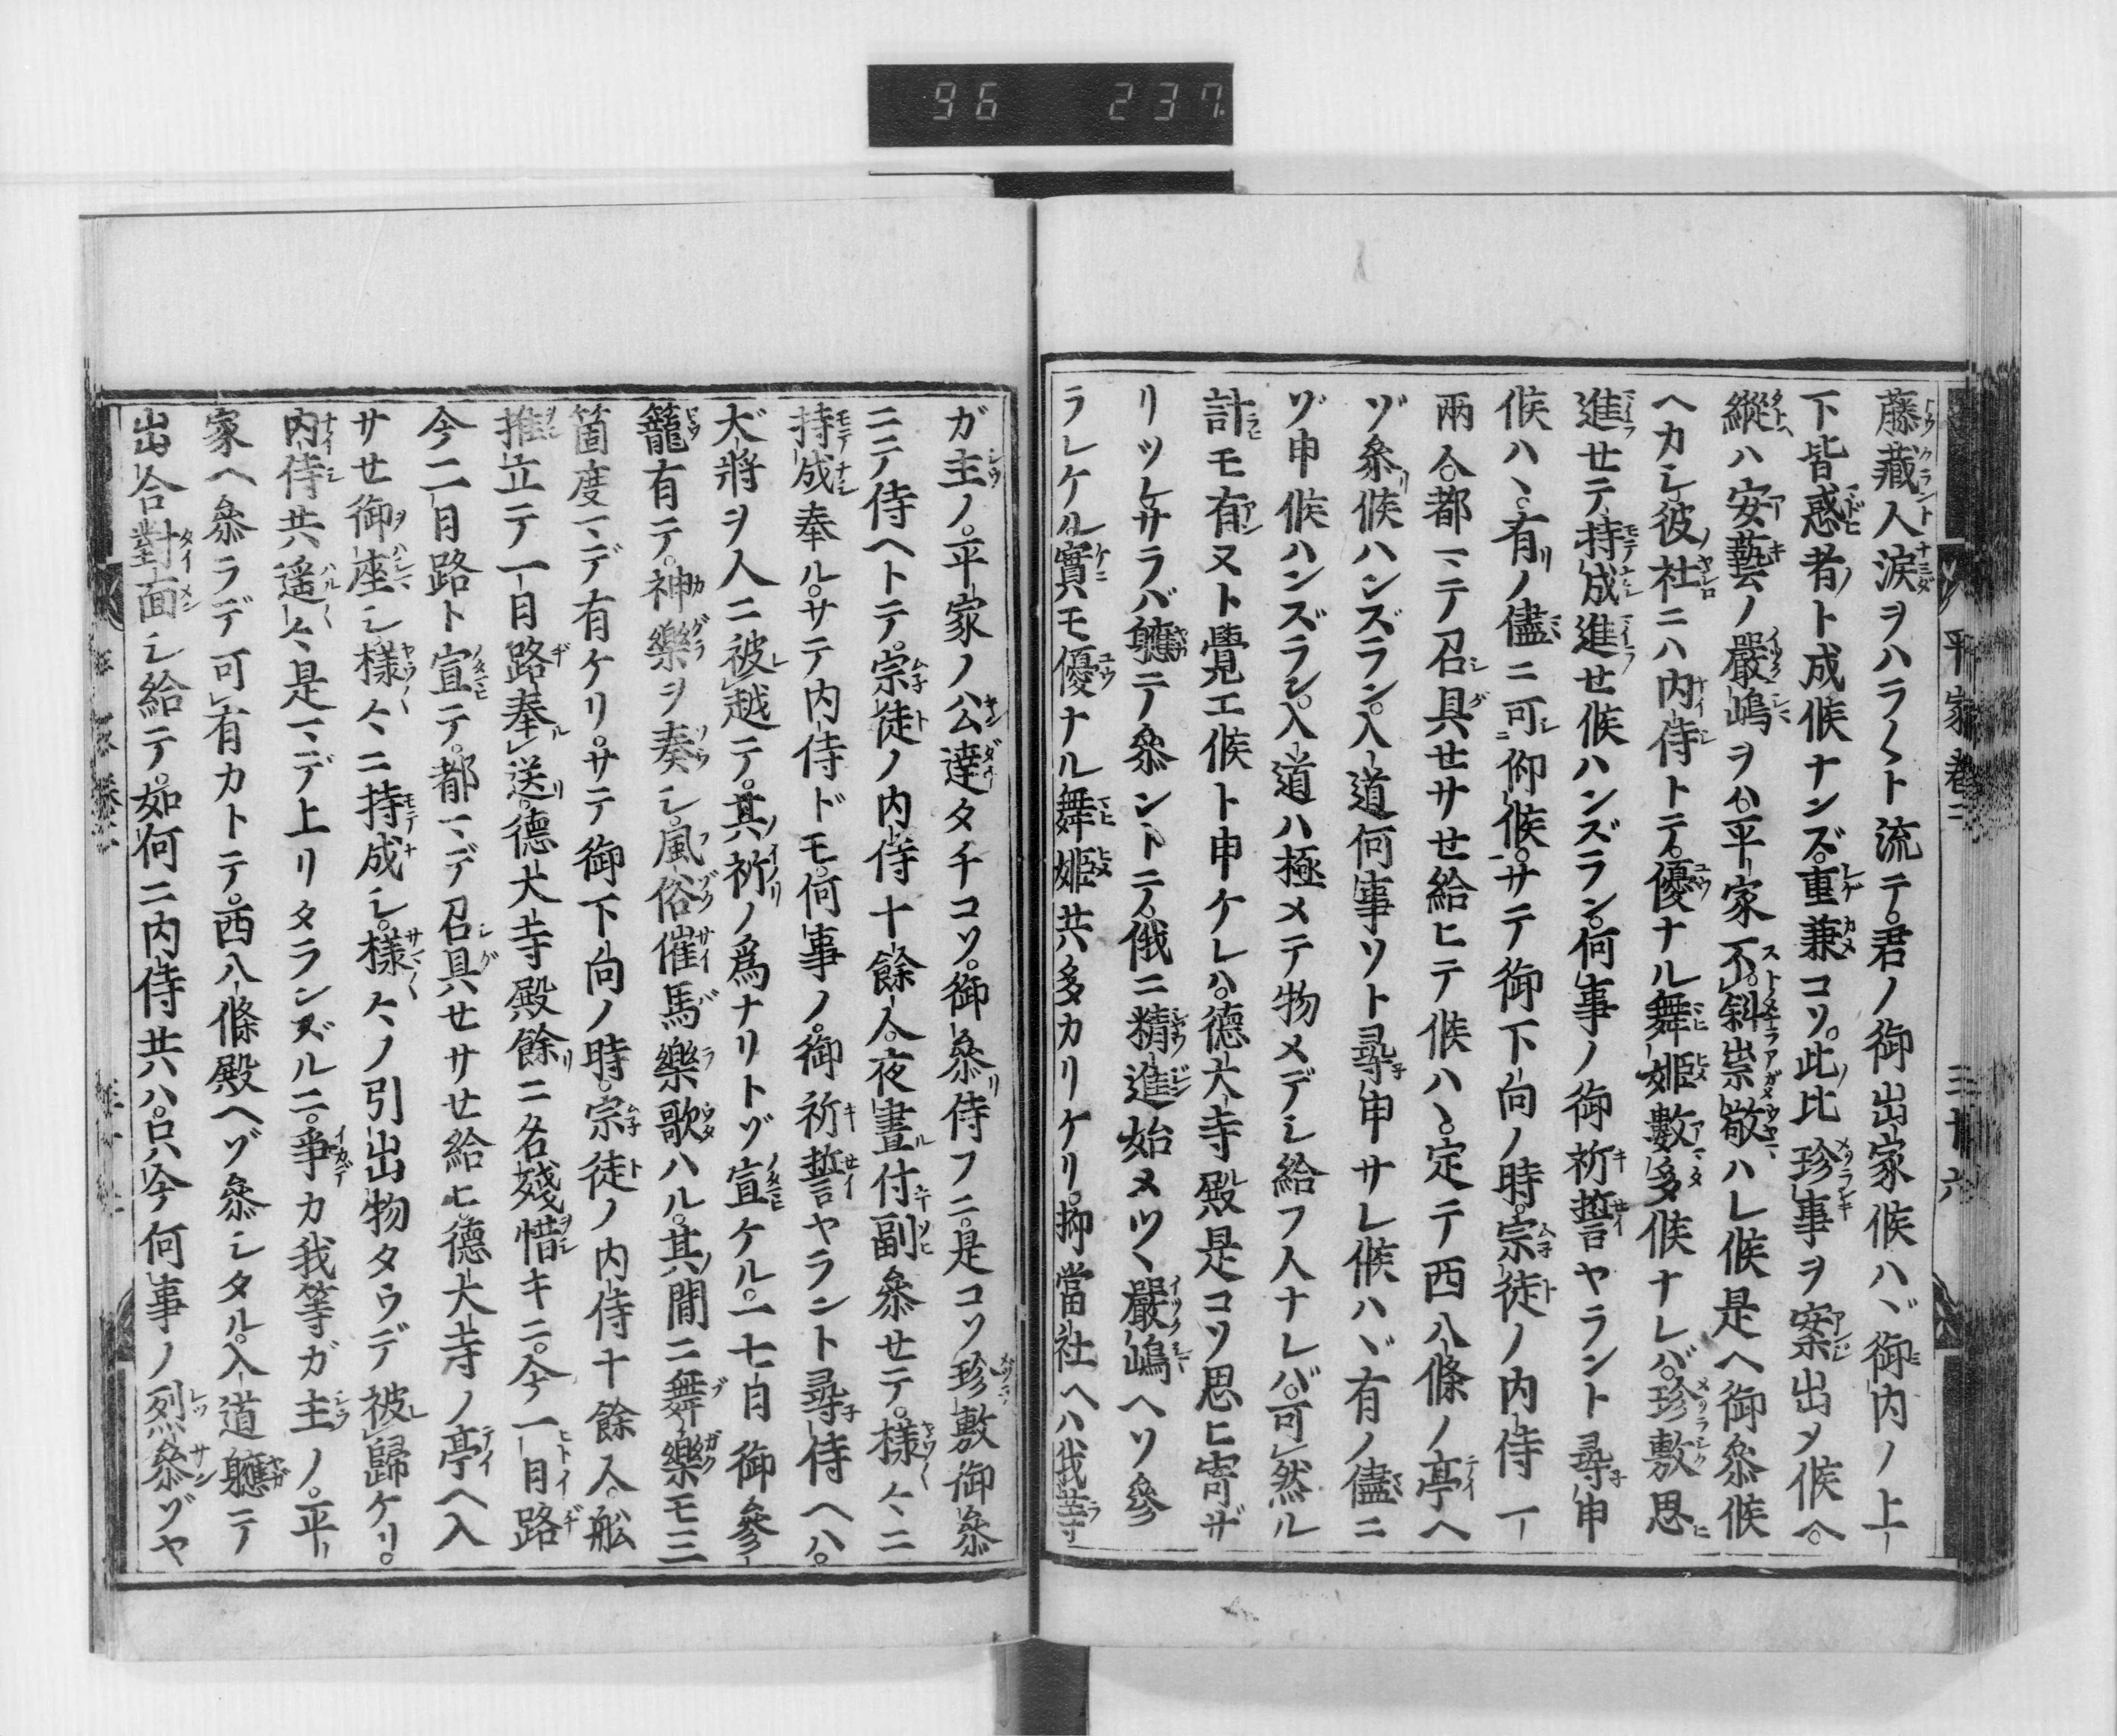 96 237
平家巻二 三十六
藤蔵人涙ヲハラ〱ト流テ。君ノ御出家候ハヾ御内ノ上
下皆惑者ト成候ナンズ。重兼コソ。此比珍事ヲ案出メ候へ。
縦ハ安藝ノ嚴嶋ヲハ。平家不斜崇敬ハレ候是へ御參候
ヘカシ彼社ニハ内侍トテ。優ナル舞姫數多候ナレバ。珍敷思
進セテ。持成進セ候ハンズラン。何事ノ御祈誓ヤラント尋申
候ハヽ。有ノ儘ニ可仰候。サテ御下向ノ時。宗徒ノ内侍一
兩人。都マテ召具セサせ給ヒテ候ハヽ。定テ西八條ノ亭へ
ゾ參候ハンズラン。入道何事ソト尋申サレ候ハヾ有ノ儘ニ
ゾ申候ハンズラン。入道ハ極メテ物メデシ給フ人ナレバ。可然ル
計モ有ヌト覺エ候ト申ケレハ。德大寺殿是コソ思ヒ寄ザ
リツレサラバ軈テ參ントテ。俄ニ精進始メツヽ嚴嶋ヘソ參
ラレケル實モ優ナル舞姫共多カリケリ。抑當社ヘハ我等
ガ主ノ。平家ノ公達タチコソ。御參侍フニ。是コソ珍敷御參
ニテ侍ヘトテ。宗徒ノ内侍十餘人。夜晝付副參せテ。樣々ニ
持成奉ル。サテ内侍ドモ。何事ノ。御祈誓ヤラント尋侍ヘハ。
大將ヲ人ニ被越テ。其祈ノ爲ナリトゾ宣ケル。一七日御參
籠有テ。神樂ヲ奏シ。風俗催馬樂歌ハル。其間ニ舞樂モ三
箇度マデ有ケリ。サテ御下向ノ時。宗徒ノ内侍十餘人。舩
推立テ一日路奉送。德大寺殿餘ニ名殘惜キニ。今一日路
今二日路ト宣テ。都マデ召具せサせ給ヒ。德大寺ノ亭ヘ入
サせ御座シ樣々ニ持成シ。樣々ノ引出物タウデ被歸ケリ。
内侍共遥々是マデ上リタランズルニ。爭カ我等ガ主ノ。平
家ヘ參ラデ可有カトテ。西八條殿ヘゾ參シタル。入道軈テ
出合對面シ給テ。如何ニ内侍共ハ。只今何事ノ烈參ゾヤ